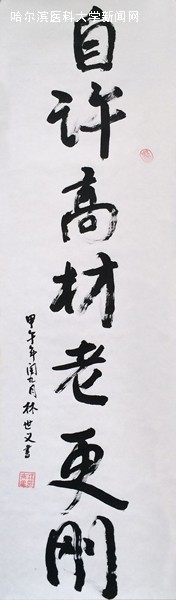 哈尔滨医科大学新闻网
自许高材老更刚
甲午年闰九月林世又書